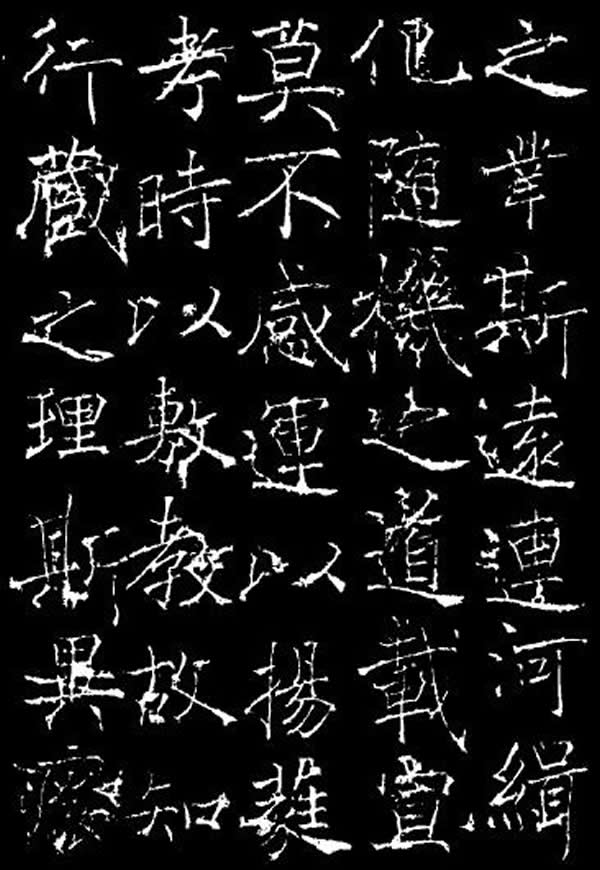 之業斯遠運河緝
化随機之道載宣
莫不感運以揚蕤
考時以敷教故知
行藏之理斯異